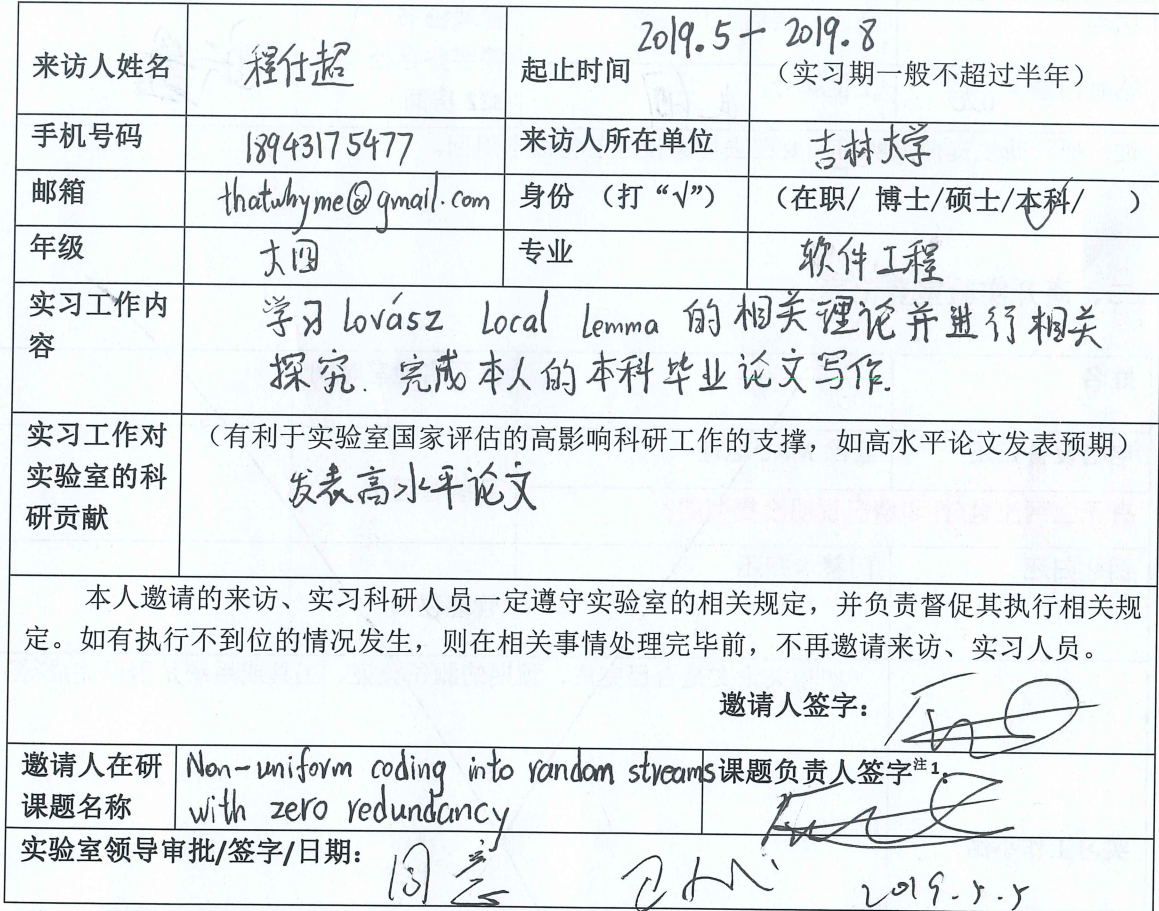 来访人姓名 程仕超 起止时间 2019.5 — 2019.8
（实习期一般不超过半年）
手机号码 18943175477 来访人所在单位 吉林大学
邮箱 thatwhyme@gmail.com 身份 （打“√”） （在职/ 博士/硕士/本科/ ）
年级 大四 专业 软件工程
实习工作内容 学习 Lovász Local Lemma 的相关理论并进行相关
探究. 完成本人的本科毕业论文写作.
实习工作对实验室的科研贡献 （有利于实验室国家评估的高影响科研工作的支撑，如高水平论文发表预期）
发表高水平论文
本人邀请的来访、实习科研人员一定遵守实验室的相关规定，并负责督促其执行相关规
定。如有执行不到位的情况发生，则在相关事情处理完毕前，不再邀请来访、实习人员。
邀请人签字：
邀请人在研课题名称 Non-uniform coding into random streams
with zero redundancy
课题负责人签字注1：
实验室领导审批/签字/日期： 同意 2019.5.5